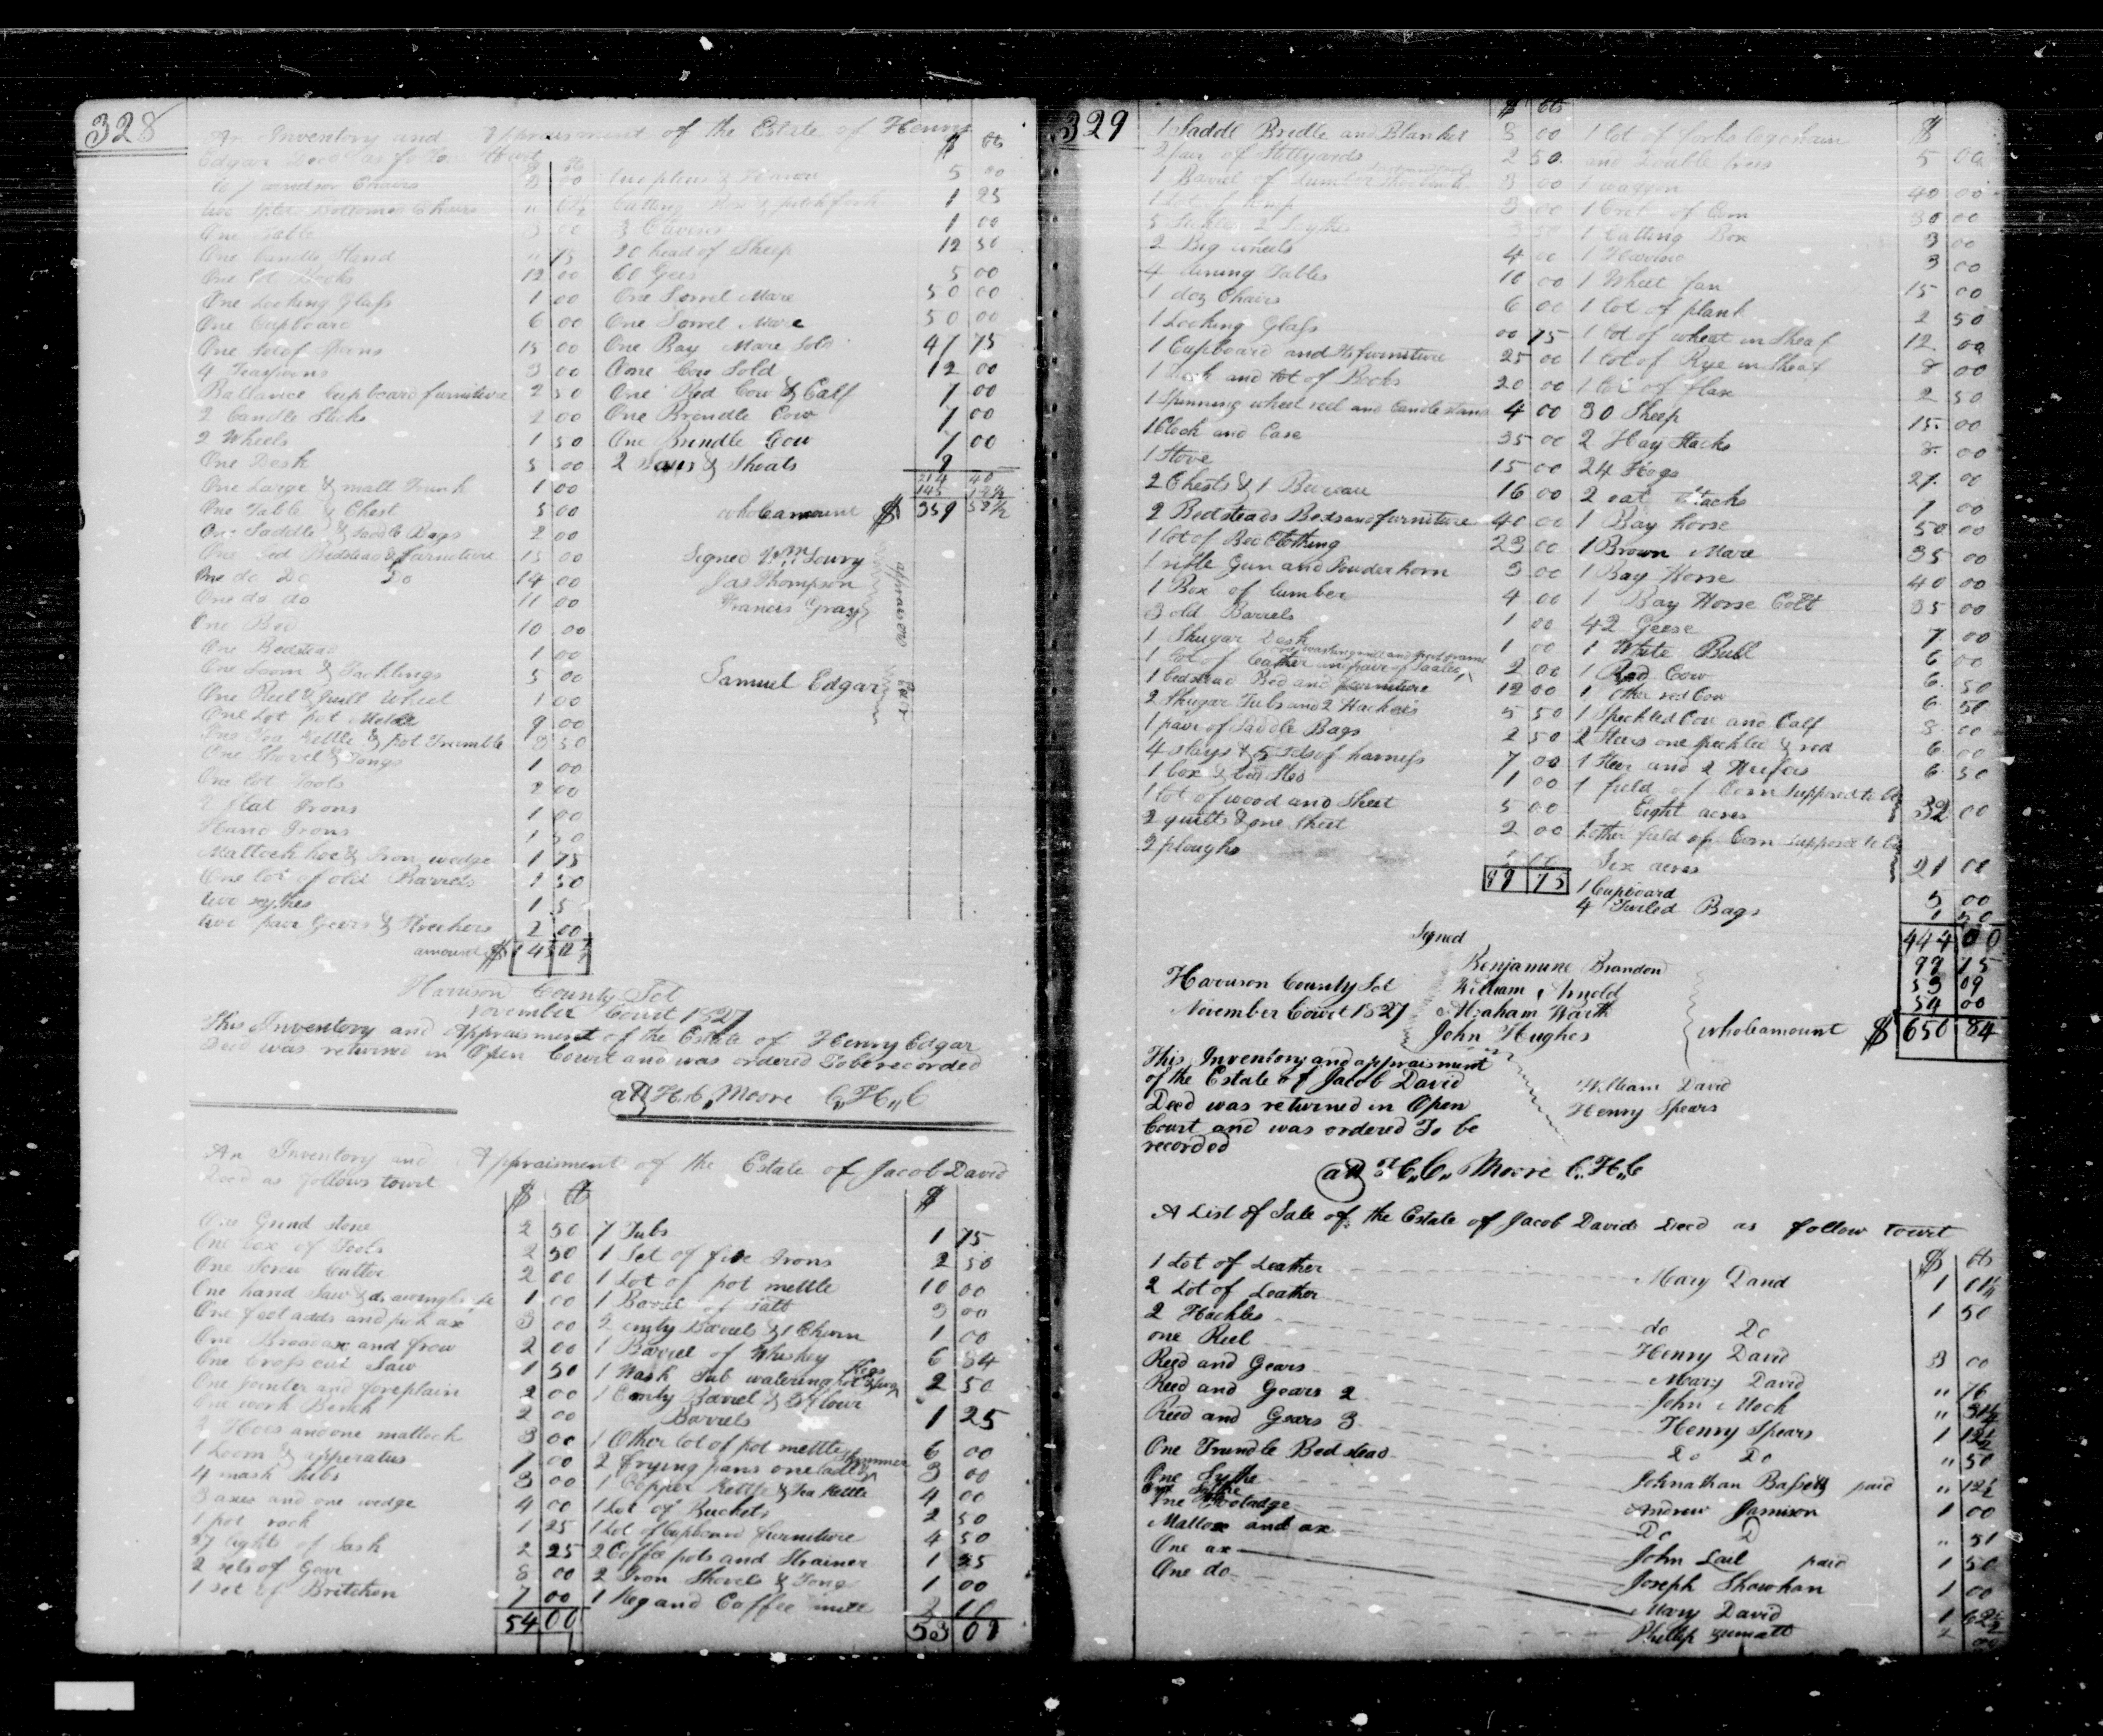 328
An Inventory and Appraisment of the Estate of Henry
Edgar Decd as follows towit
$ cts
windsor Chairs 3 00
two split Bottomed Chairs " 62½
One Table 3 00
One Candle Stand " 75
One lot Books 12 00
One Looking Glass 1 00
One Cupboard 6 00
One Set of Spoons 15 00
4 Teaspoons 3 00
Ballance Cupboard furniture 2 50
2 Candle Sticks 2 00
2 Wheels 1 50
One Desk 5 00
One Large & small Trunk 1 00
One Table & Chest 5 00
One Saddle & Saddle Bags 2 00
One Bed Bedstead & furniture 15 00
One do Do Do 14 00
One do do 11 00
One Bed 10 00
One Bedstead 1 00
One Loom & Tacklings 5 00
One Reel & quill Wheel 1 00
One Lot pot Mettle 9 00
One Tea kettle & pot Tramble 3 50
One Shovel & Tongs 1 00
One lot Tools 2 00
2 flat Irons 1 00
Hand Irons 1 50
Mattock hoe & Iron wedge 1 75
One lot of old Barrels 1 50
two scythes 1 5
two pair Gears & Strechers 2 00
amount $ 145 12½
$ cts
5 00
Cutting Box & pitch fork 1 25
3 1 00
20 head of Sheep 12 50
60 Gees 5 00
One Sorrel Mare 50 00
One Sorrel Mare 50 00
One Bay Mare Sold 47 75
One Cow Sold 12 00
One Red Cow & Calf 7 00
One Brendle Cow 7 00
One Brindle Cow 7 00
2 Sows & Shoats 9
214 40
145 12½
whole amount $ 359 52½
Signed Wm Lowry
Jas Thompson
Francis Gray
appraisers
Samuel Edgar
Harrison County Sct
November Court 1827
This Inventory and Appraisment of the Estate of Henry Edgar
Decd was returned in Open Court and was ordered To be recorded
att H. C. Moore C,,H,,C
An Inventory and Appraisment of the Estate of Jacob David
Decd as follows towit
$ ct
One Grind stone 2 50
One box of Tools 2 50
One Screw Cutter 2 00
One hand Saw & drawing 1 00
One foot adds and pick ax 3 00
One Broadax and frow 2 00
One Cross cut Saw 1 50
One Jointer and foreplain 2 00
One work Bench 2 00
2 Hoes and one mattock 3 00
1 Loom & apperatus 1 00
4 mash Tubs 3 00
3 axes and one wedge 4 00
1 pot rack 1 25
27 lights of Sash 2 25
2 sets of Gear 8 00
1 set of Britchen 7 00
54 00
$
7 Tubs 1 75
1 Set of fire Irons 2 50
1 Lot of pot mettle 10 00
1 Barrel of Salt 3 00
2 emty Barrels & 1 Churn 1 00
1 Barrel of Whiskey 6 84
1 Wash Tub watering pot 3 Jugs Kegs 2 50
1 Emty Barrel & 3 flour
Barrels 1 25
1 Other lot of pot mettle 6 00
2 frying pans one ladle skimmer 3 00
1 Copper Kettle & Tea Kettle 4 00
1 Lot of Buckets 2 50
1 Lot of Cupboard furniture 4 50
2 Coffe pots and Strainer 1 25
2 Iron Shovels & Tong 1 00
1 Keg and Coffee mill 2
53 09
329
$ cts
1 Saddle Bridle and Blanket 3 00
2 pair of Stillyards 2 50
1 Barrel of Lumber 3 00
1 Lot of 3 00
5 Sickles 2 Scythes 3 50
2 Big wheels 4 00
4 dining Tables 10 00
1 doz Chairs 6 00
1 Looking Glass 00 75
1 Cupboard and its furniture 25 00
1 and lot of Books 20 00
1 Spinning wheel reel and Candle stand 4 00
1 Clock and Case 35 00
1 Stove 15 00
2 Chests & 1 Bureau 16 00
2 Bedsteads Beds and furniture 40 00
1 lot of Bed Clothing 23 00
1 rifle Gun and Powder horn 3 00
1 Box of lumber 4 00
3 old Barrels 1 00
1 Shugar Desk 1 00
1 lot of leather and pair of 2 00
1 bedstead Bed and furniture 12 00
2 Shugar Tubs and 2 Hackels 5 50
1 pair of Saddle Bags 2 50
4 slays & 5 sets of harness 7 00
1 box & 1 00
1 lot of wood and Sheet 5 00
2 quilts & one Sheet 2 00
2 ploughs
75
$
1 lot of forks log chain
and Double trees 5 00
1 waggon 40 00
1 Crib of Corn 30 00
1 Cutting Box 3 00
1 Harrow 3 00
1 Wheet fan 15 00
1 lot of plank 2 50
1 lot of wheat in Sheaf 12 00
1 lot of Rye in Sheaf 8 00
1 lot of flax 2 50
30 Sheep 15 00
2 Hay Stacks 8 00
24 Hogs 27 00
2 oat Stacks 7 00
1 Bay horse 50 00
1 Brown Mare 35 00
1 Bay Horse 40 00
1 Bay Horse Colt 35 00
42 Geese 7 00
1 White Bull 6 00
1 Red Cow 6 50
1 Other red Cow 6 50
1 Speckled Cow and Calf 8 00
2 Steers one speckled & red 6 00
1 Steer and 2 Heifers 6 50
1 field of Corn supposed to be
Eight acres 32 00
1 other field of Corn supposed to be
Six acres 21 00
1 Cupboard 5 00
4 Twiled Bags 1 50
444 00
99 75
53 09
54 00
whole amount $ 650 84
Signed
Benjamine Brandon
William Arnold
Abraham Warth
John Hughes
Harrison County Sct
November Court 1827
This Inventory and appraisment
of the Estate of Jacob David
Decd was returned in Open
Court and was ordered To be
recorded
William David
Henry Spears
att H,,C,, Moore C,,H,,C
A List of Sale of the Estate of Jacob Davids Decd as follow towit
$ cts
1 Lot of Leather Mary David 1
2 Lot of Leather do Do 1 50
2 Hackles Henry David 3 00
one Reel Mary David " 76
Reed and Gears John Mock " 31¼
Reed and Gears 2 Henry Spears 1 12½
Reed and Gears 3 Do Do " 50
One Trundle Bedstead Johnathan Bassett paid " 12½
One Sythe Andrew Jamison 1 00
One Footadge Do D " 51
Mattox and ax John Lail paid 1 50
One ax Joseph Shawhan 1 00
One do Mary David 1 62½
Phillip Zumatt 2 00